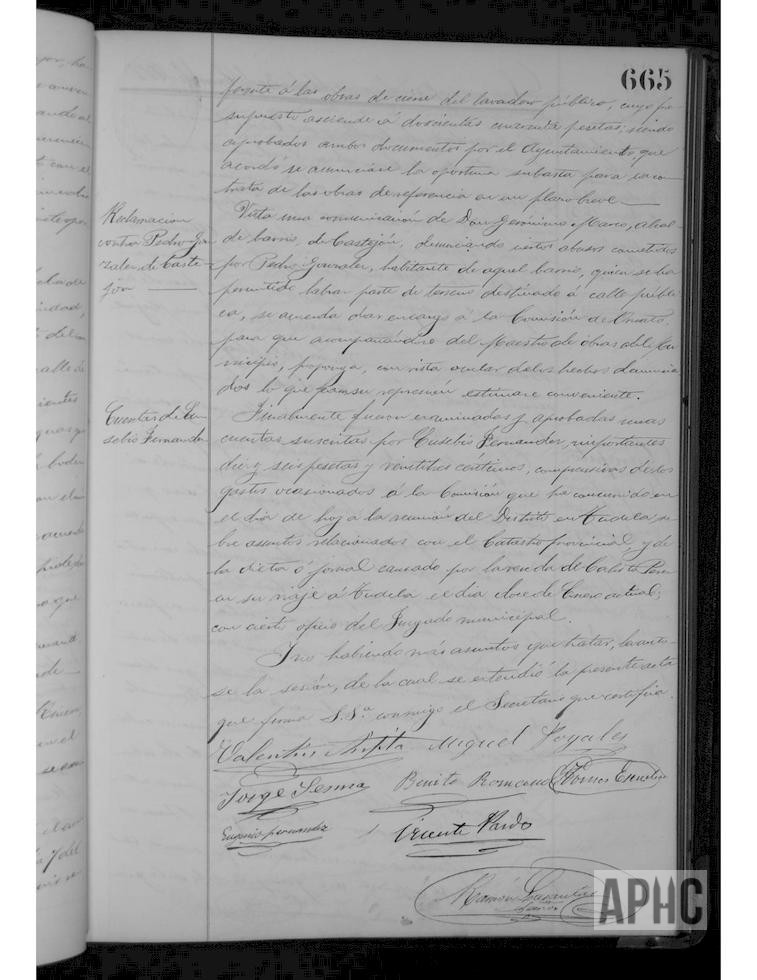 665
á las obras de cierre del lavadero público, cuyo pre-
supuesto asciende á doscientas cincuenta pesetas; siendo
aprobados ambos documentos por el Ayuntamiento, que
acordó se anunciase la oportuna subasta para la con-
trata de las obras de referencia en un plazo breve.
Reclamacion
contra Pedro Gon-
zalez de Caste-
jon
Vista una comunicación de Don Gerónimo Marco, alcal-
de de barrio, de Castejón, denunciando ciertos abusos cometidos
por Pedro Gonzalez, habitante de aquel barrio, quien se ha
permitido labrar parte de terreno destinado á calle públi-
ca, se acuerda dar encargo á la Comisión de Ornato,
para que acompañándose del Maestro de obras del Mu-
nicipio, proponga, con vista ocular de los hechos denuncia-
dos lo que para su represión estimare conveniente.
Cuentas de Eu-
sebio Fernandez
Finalmente fueron examinadas y aprobadas unas
cuentas suscritas por Eusebio Fernandez, importantes
diez y seis pesetas y céntimos, comprensivas de los
gastos ocasionados á la Comisión que ha concurrido en
el dia de hoy á la reunión del Distrito en Tudela, so-
bre asuntos relacionados con el Catastro provincial, y de
la dieta ó jornal causado por la de Calisto
en su viaje á Tudela el dia doce de Enero actual,
con cierto oficio del Juzgado municipal.
Y no habiendo más asuntos que tratar, levanto-
se la sesión, de la cual se extendió la presente acta
que firma S.Sª conmigo el Secretario que certifica.
Valentin Miguel Poyales
Jorge Benito Romano
Eugenio Fernandez Vicente Pardo
Ramón
APHC